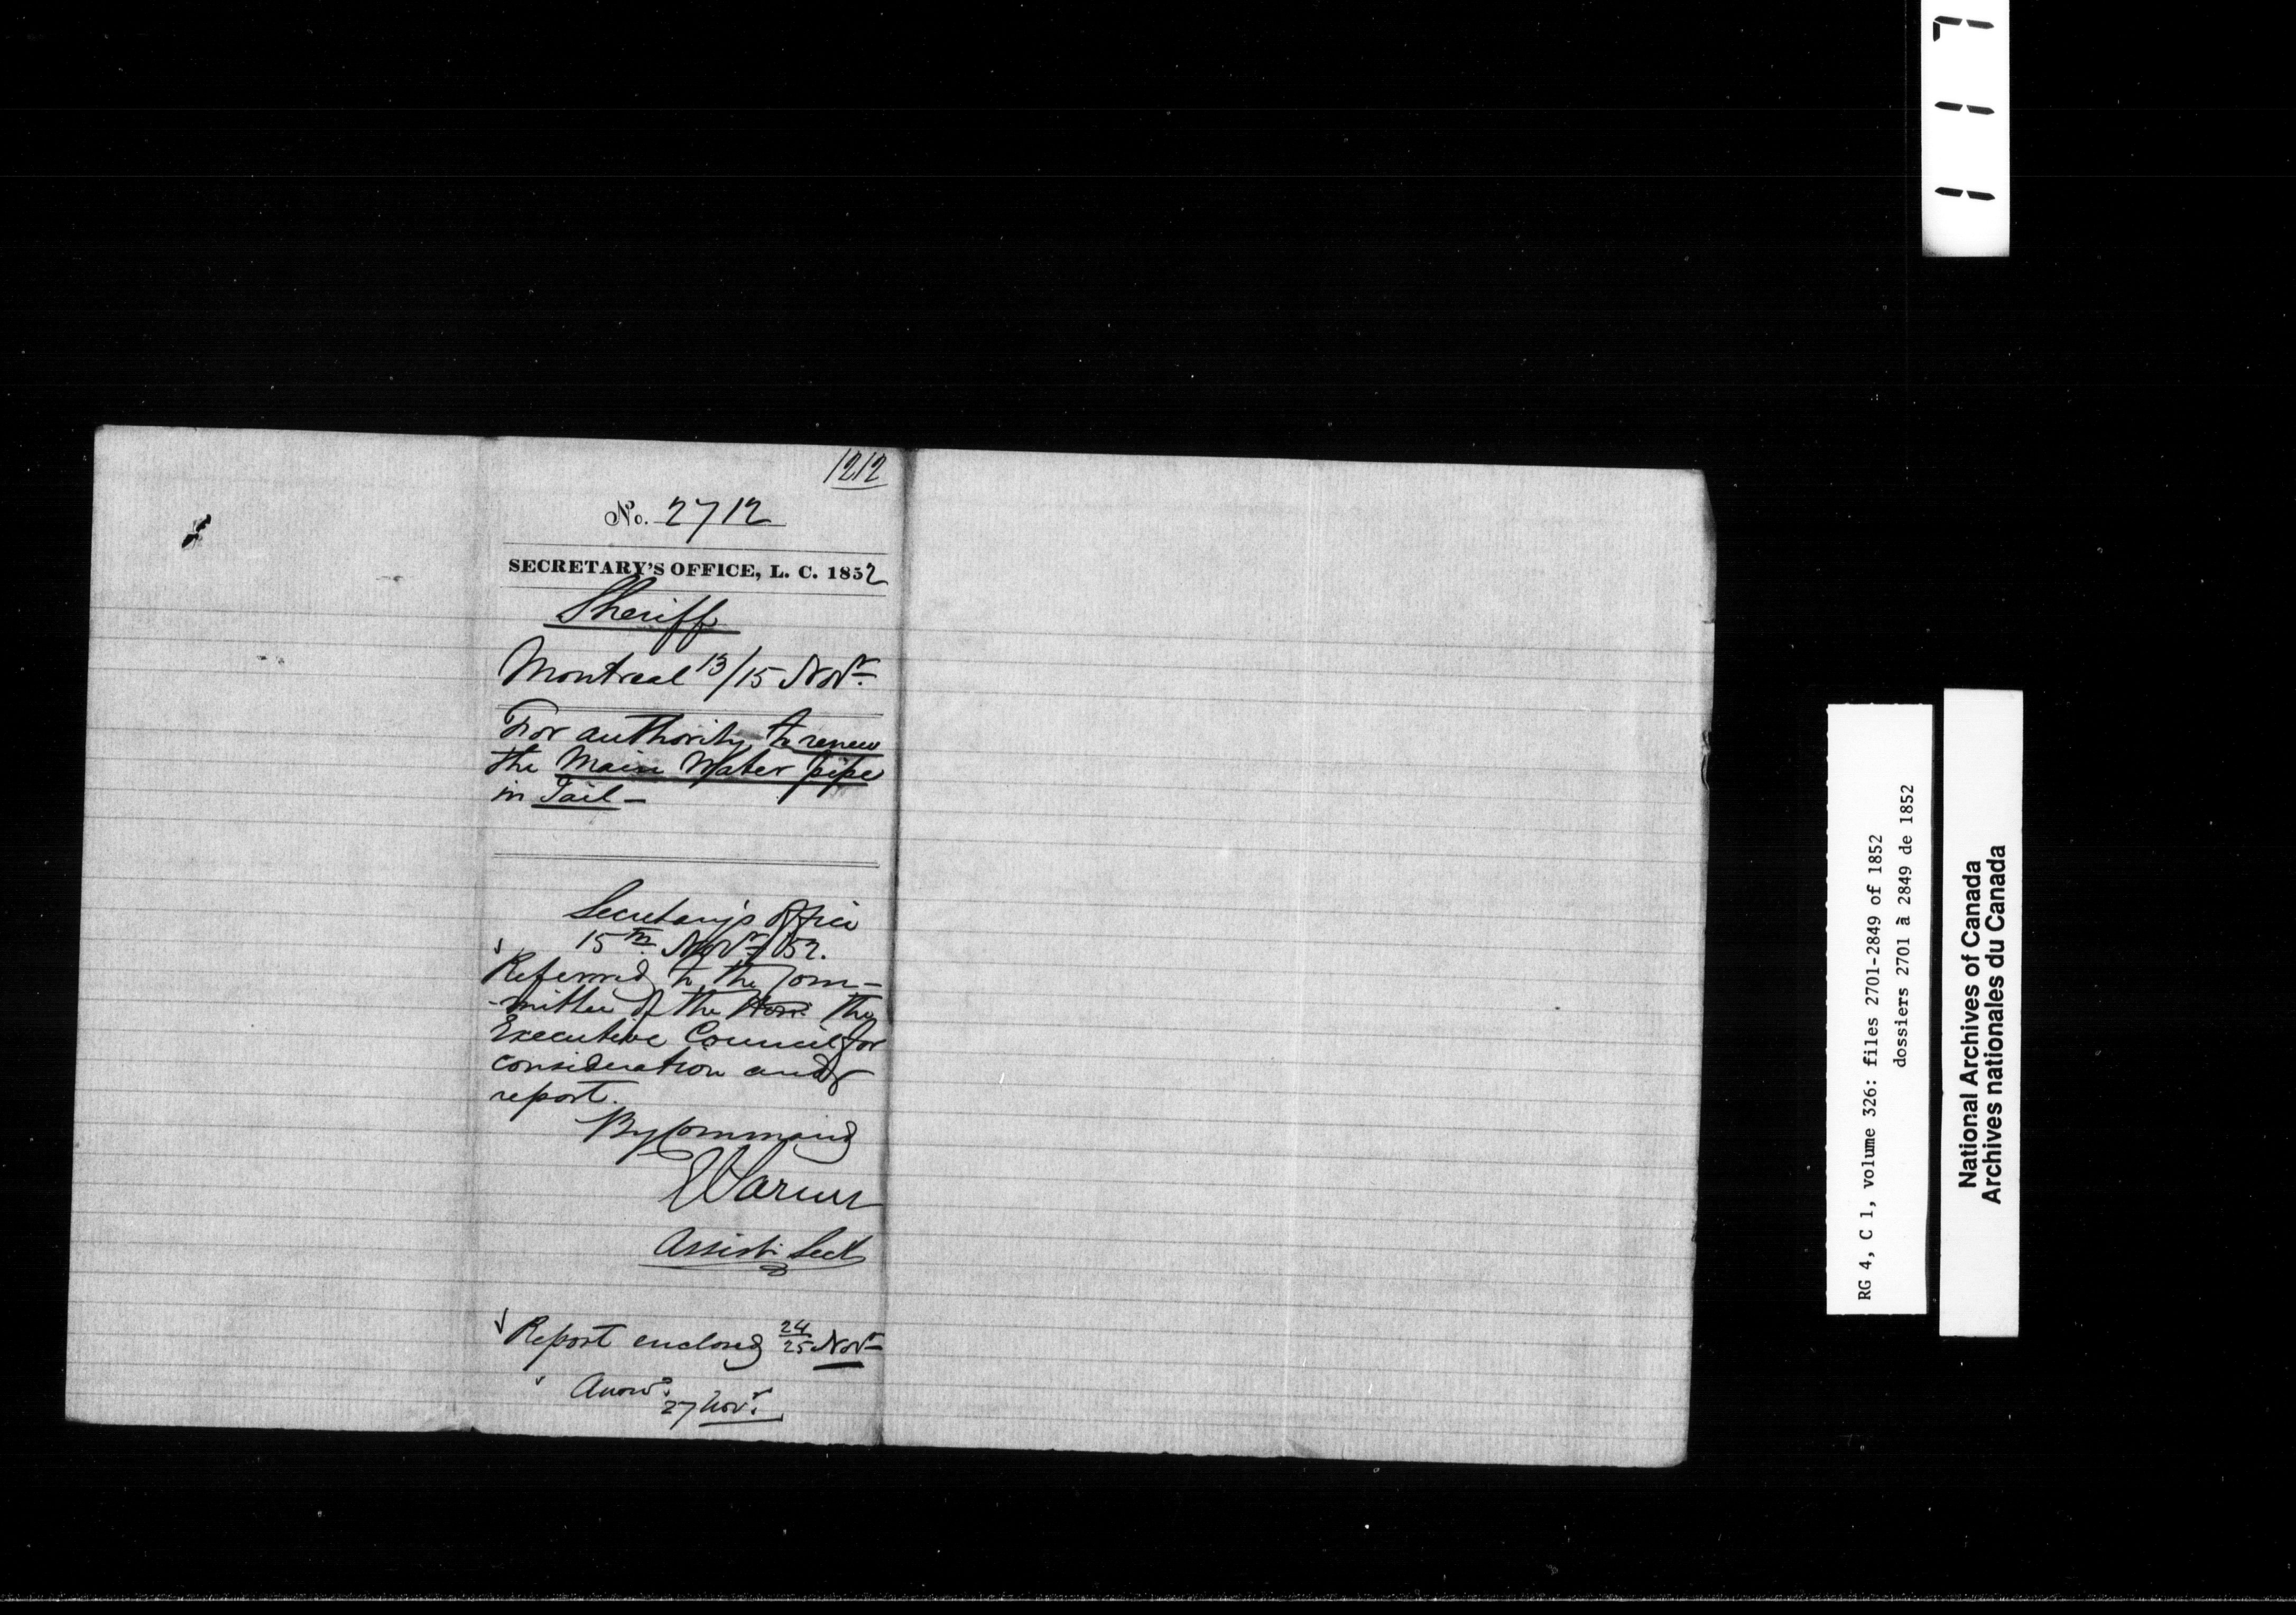 1212
No. 2712
SECRETARY'S OFFICE, L. C. 1852
Sheriff
Montreal 13/15 Novr.
For authority to renew
the Main Water pipe
in Jail —
Secretary's Office
15th Novr. /52.
Referred to the Com-
-mittee of the Hon. The
Executive Council for
consideration and
report.
By Command
Assist. Secy
Report enclosed 24/25 Novr
27 Novr.
1117
RG 4, C 1, volume 326: files 2701-2849 of 1852
dossiers 2701 à 2849 de 1852
National Archives of Canada
Archives nationales du Canada